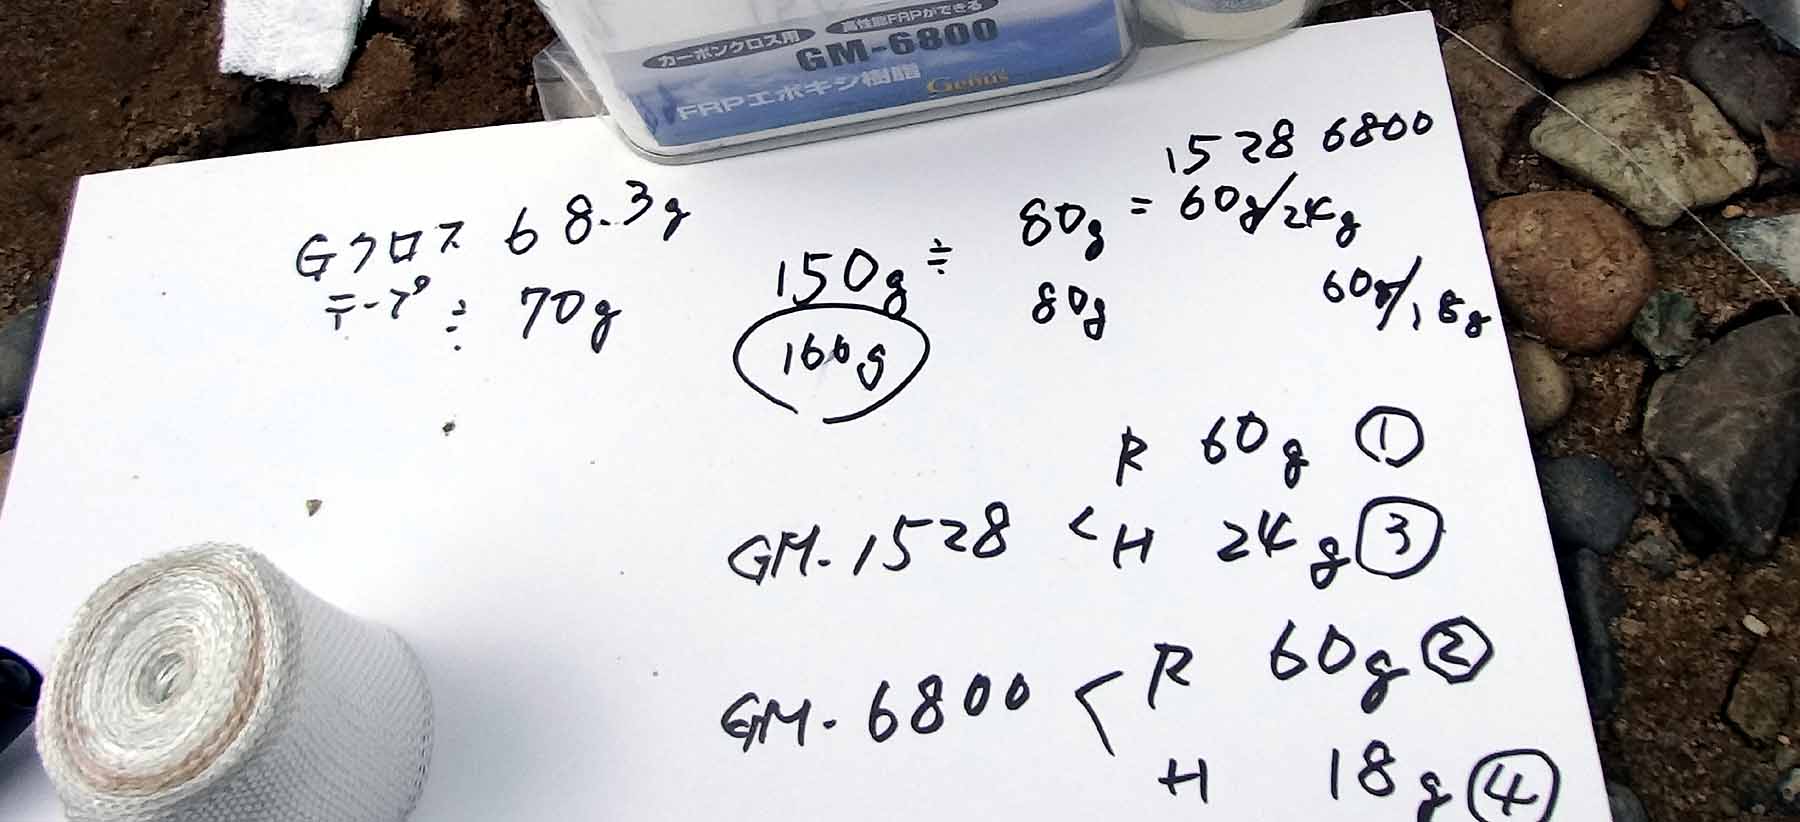 カーボンクロス用 高性能FRPができる
GM-6800
FRPエポキシ樹脂 Genus
1528 6800
Gクロス 68.3g
テープ ≒ 70g
150g ≒ 80g = 60g/24g
166g 80g 60g/18g
R 60g ①
GM-1528 < H 24g ③
GM-6800 < R 60g ②
H 18g ④